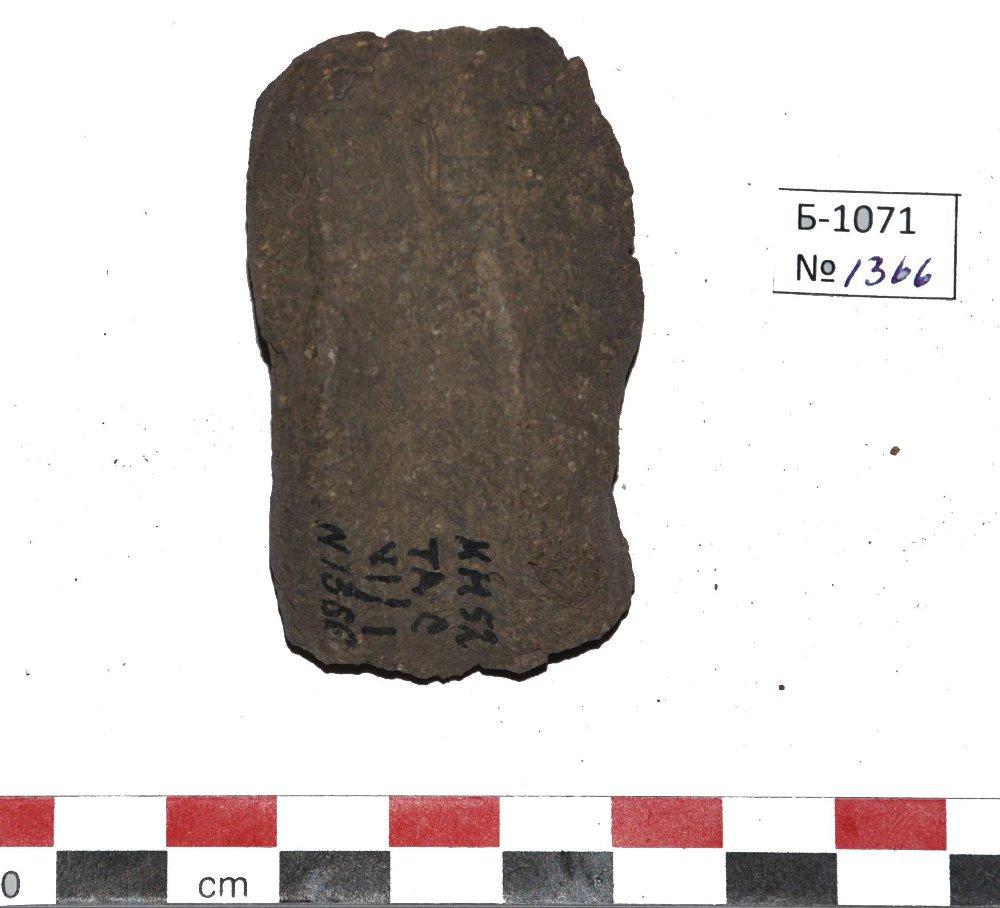 Б-1071
№ 1366
КМ 52
ТА С
VIII
N 1366
0 cm